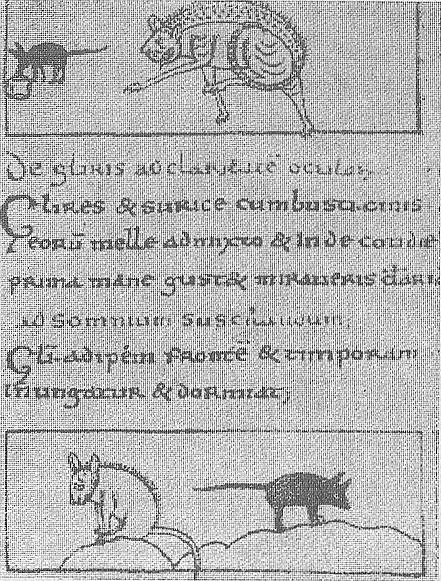 De gliris ad claritatē oculorȝ
Glires & surice cumbusti cinis
eorū melle admixto & inde cotidie
prima mane gust& miraueris claria
ad somnium suscitandum;
Gli adipem fronte & timporam
inungatur & dormiat;